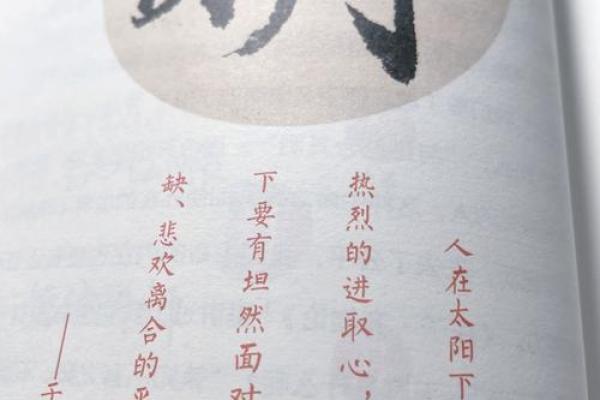 人在太阳下
热烈的进取心，
下要有坦然面对
缺、悲欢离合的